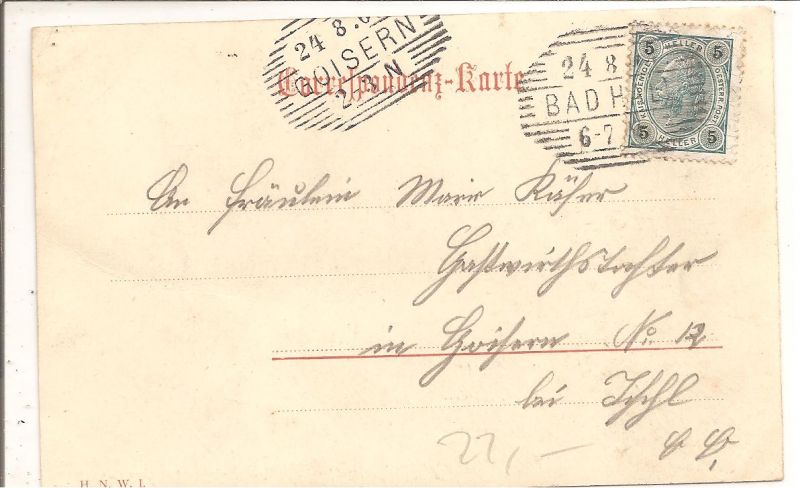 24 8.0
GOISERN
2. N
Correspondenz-Karte
24 8
BAD H
6-7
5 HELLER 5
5 HELLER 5
An Fräulein Marie
Gastwirthstochter
in Goisern No. 12
bei Ischl
22,-
H. N. W. I.